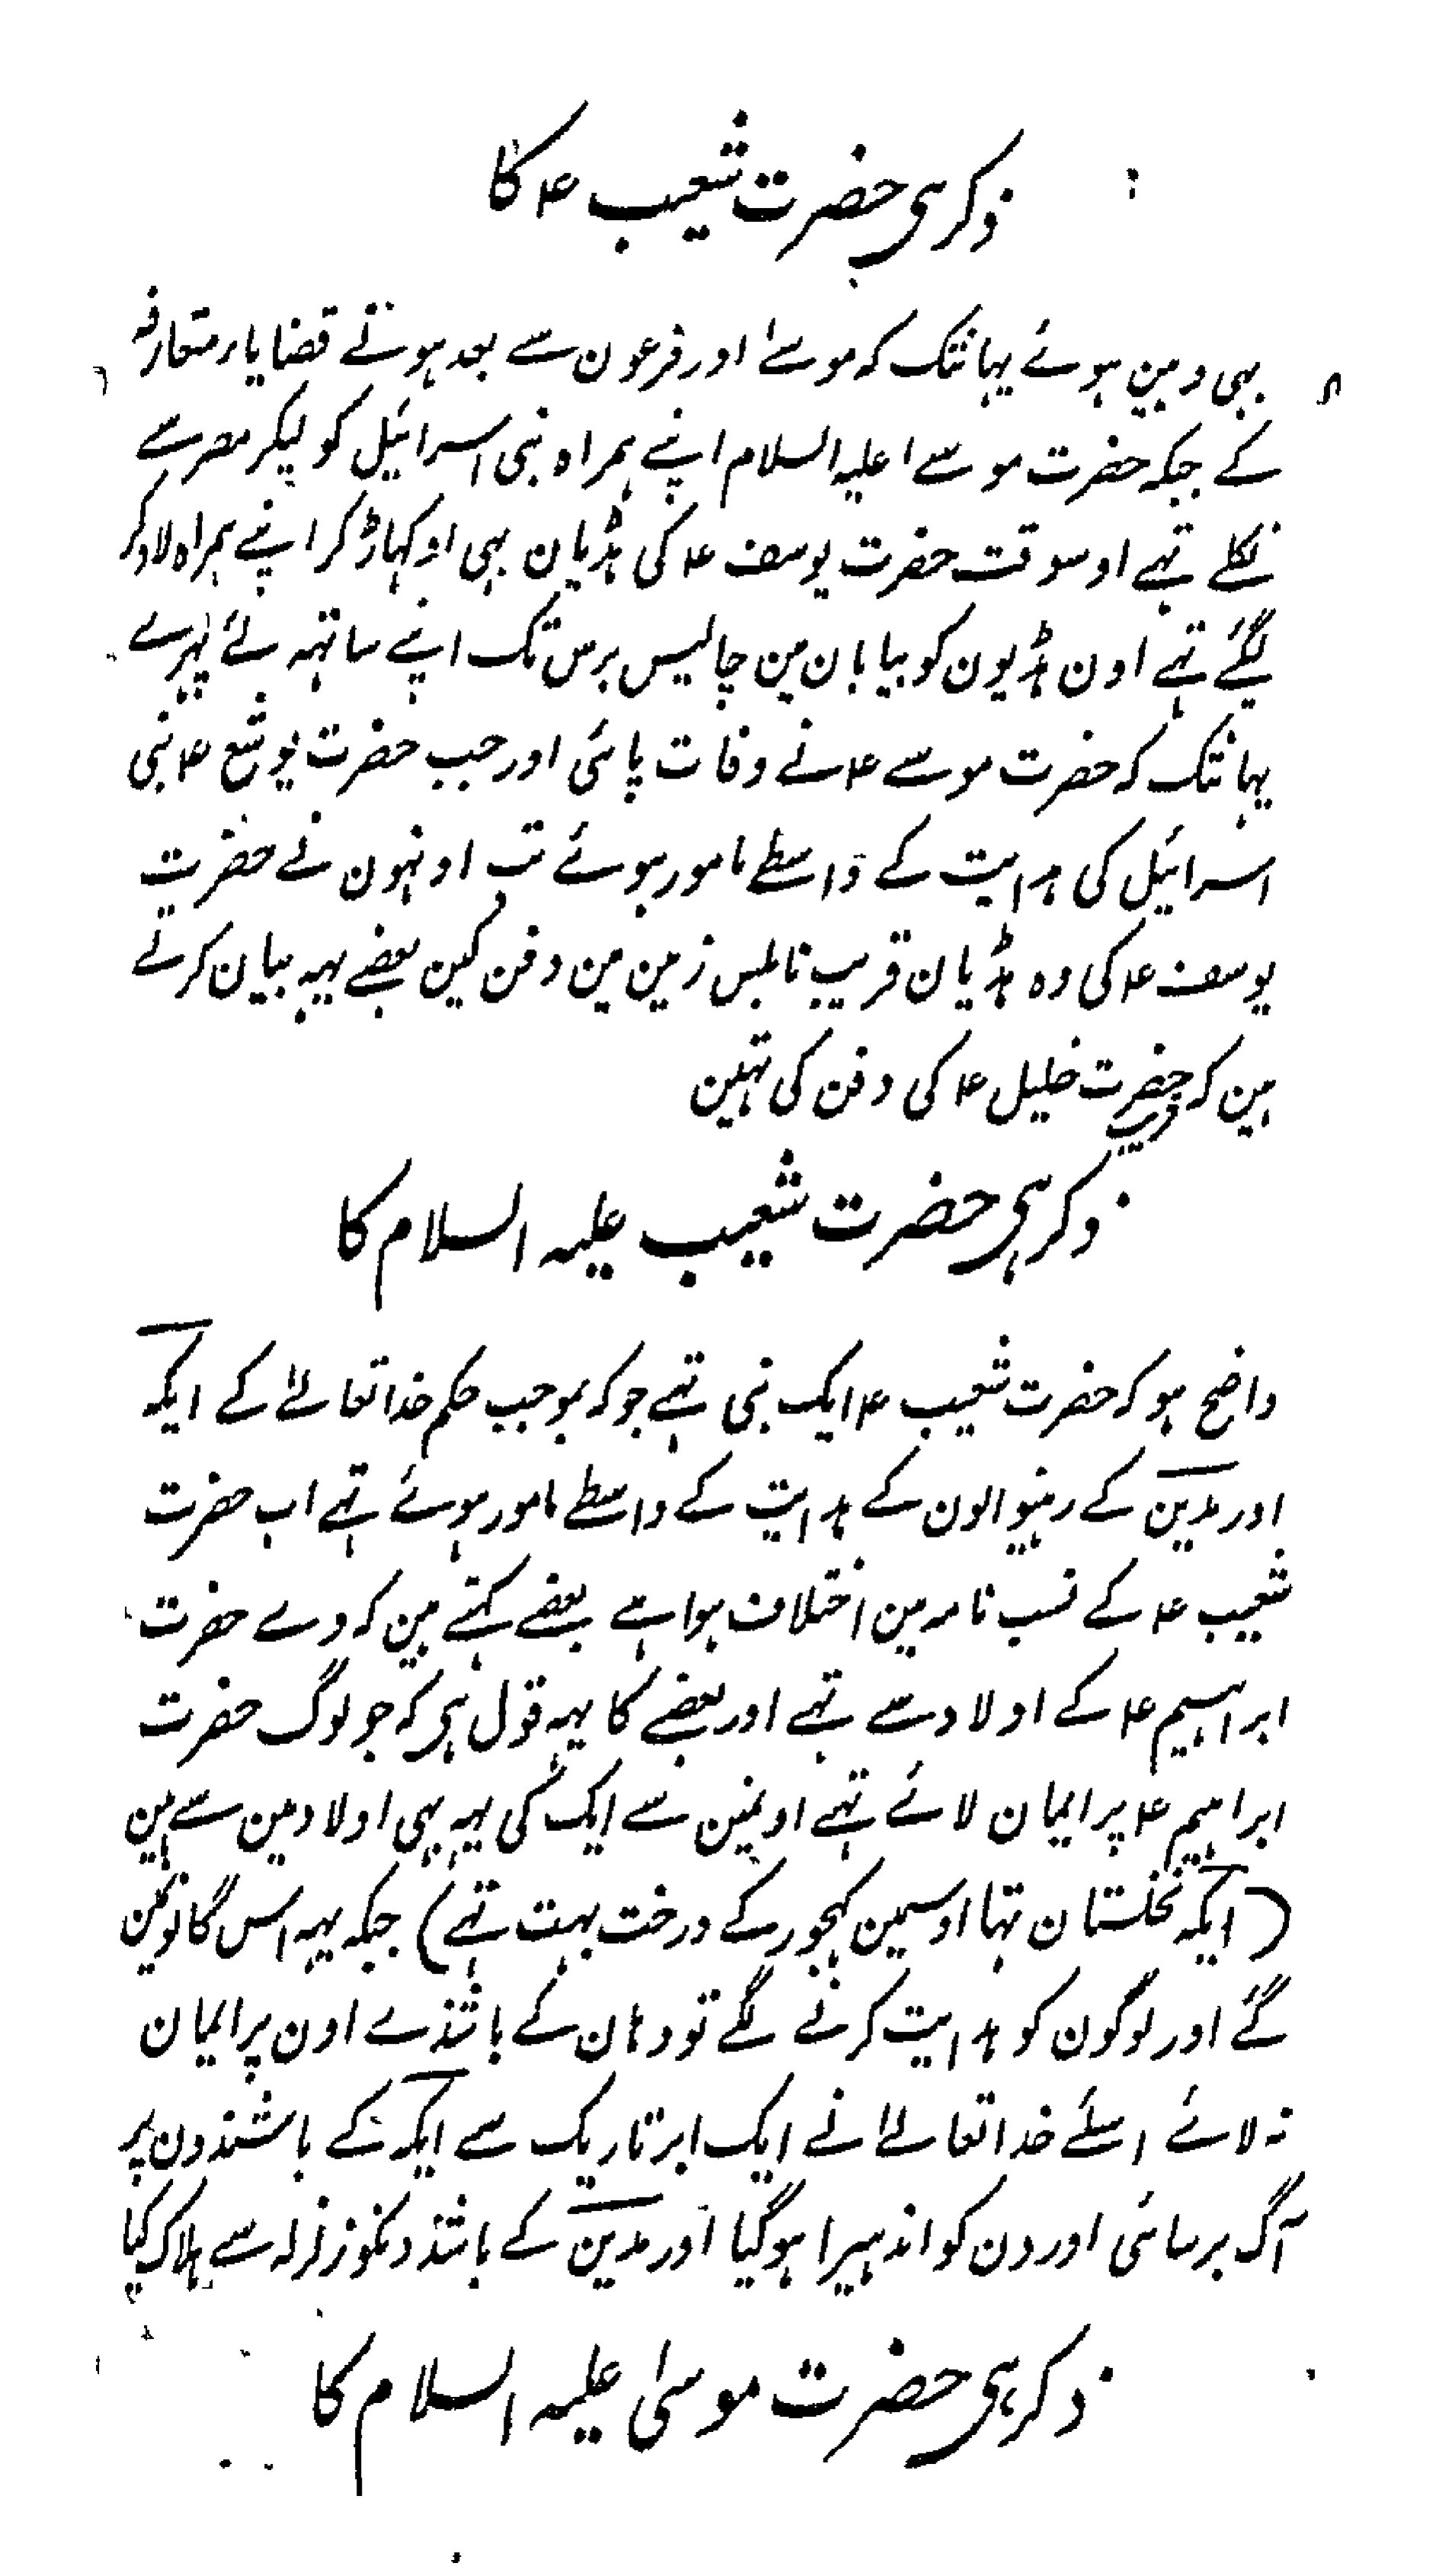 ذکر ہی حضرت شعیب ؑ کا
بہی وہین ہوئے یہانتک کہ موسےٰ اور فرعون سے بعد ہونے قضایاء متعارفہ
کے جبکہ حضرت موسے ا علیہ السلام اپنے ہمراہ بنی اسرائیل کو لیکر مصر سے
نکلے تہے اوسوقت حضرت یوسف ؑ کی ہڈیان بہی اوکہاڑ کر اپنے ہمراہ لاد کر
لیگئے تہے اون ہڈیون کو بیابان مین چالیس برس تک اپنے ساتہہ لئے پہرے
یہانتک کہ حضرت موسے ؑ نے وفات پائی اور جب حضرت یوشع ؑ بنی
اسرائیل کی ہدایت کے واسطے مامور ہوئے تب اونہون نے حضرت
یوسف ؑ کی وہ ہڈیان قریب نابلس زمین مین دفن کین بعضے یہہ بیان کرتے
ہین کہ قریب حضرت خلیل ؑ کی دفن کی تہین
ذکر ہی حضرت شعیب علیہ السلام کا
واضح ہو کہ حضرت شعیب ؑ ایک نبی تہے جو کہ بموجب حکم خدا تعالےٰ کے ایکہ
اور مدین کے رہنیوالون کے ہدایت کے واسطے مامور ہوئے تہے اب حضرت
شعیب ؑ کے نسب نامہ مین اختلاف ہوا ہے بعضے کہتے ہین کہ وے حضرت
ابراہیم ؑ کے اولاد سے تہے اور بعضے کا یہہ قول ہی کہ جو لوگ حضرت
ابراہیم ؑ پر ایمان لائے تہے اونمین سے ایک کی یہہ بہی اولاد مین سے ہین
(ایکہ نخلستان تہا اوسمین کہجور کے درخت بہت تہے) جبکہ یہہ اس گانوئمین
گئے اور لوگون کو ہدایت کرنے لگے تو وہان کے باشندے اون پر ایمان
نہ لائے اسلئے خدا تعالےٰ نے ایک ابر تاریک سے ایکہ کے باشندون پر
آگ برسائی اور دن کو اندہیرا ہو گیا اور مدین کے باشندونکو زلزلہ سے ہلاک کیا
ذکر ہی حضرت موسیٰ علیہ السلام کا